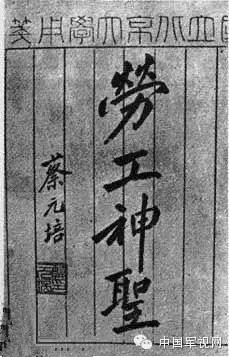 國立北京大學用箋
勞工神聖
蔡元培
中国军视网